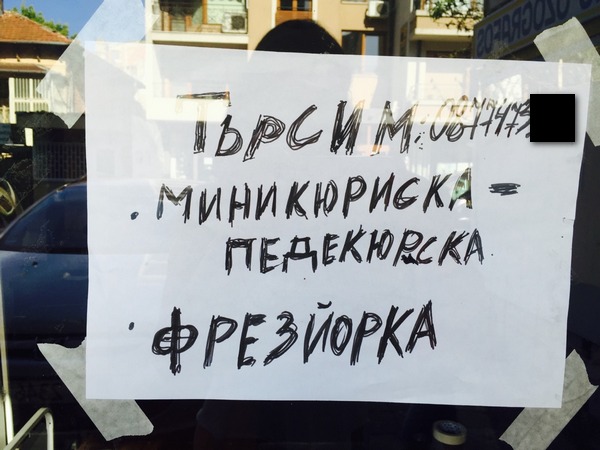 ТЪРСИМ: 0877473
• МИНИКЮРИСКА-
ПЕДЕКЮРСКА
• ФРЕЗЙОРКА